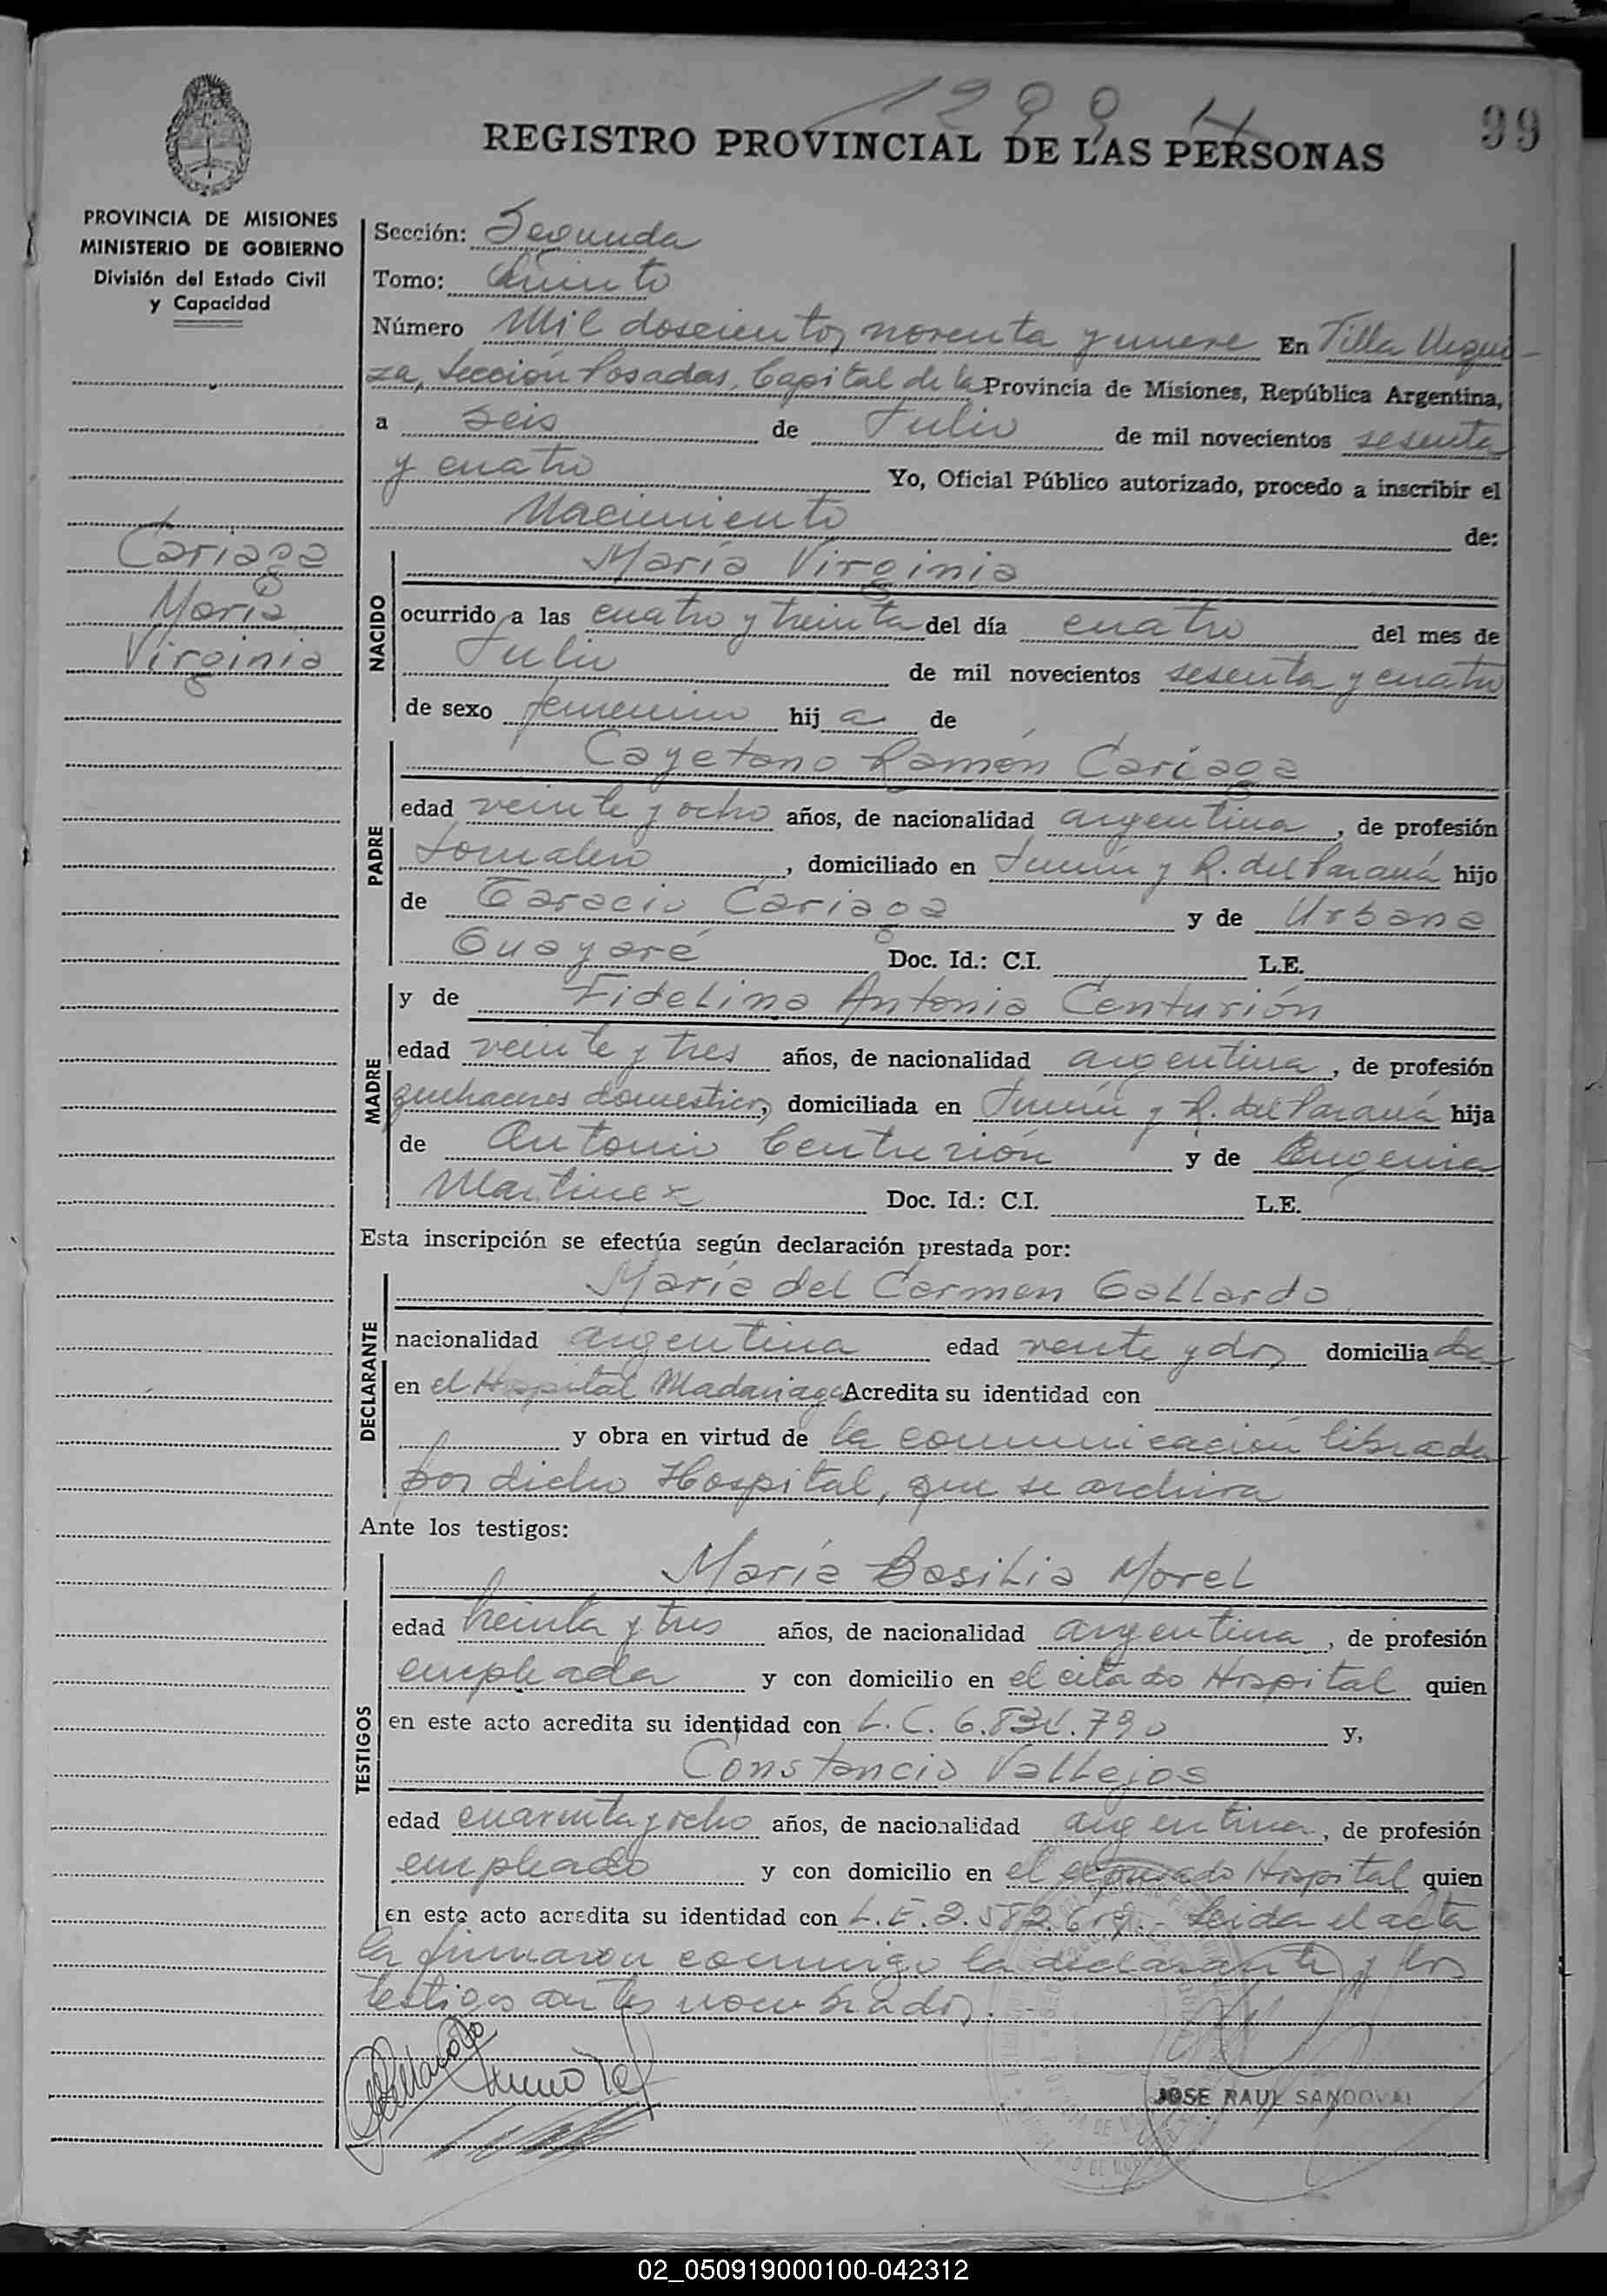 1299
99
REGISTRO PROVINCIAL DE LAS PERSONAS
PROVINCIA DE MISIONES
MINISTERIO DE GOBIERNO
División del Estado Civil
y Capacidad
Cariaga
María
Virginia
Sección: Segunda
Tomo: Quinto
Número Mil doscientos noventa y nueve En Villa Urqui-
za, Sección Posadas, Capital de la Provincia de Misiones, República Argentina,
a seis de Julio de mil novecientos sesenta
y cuatro Yo, Oficial Público autorizado, procedo a inscribir el
Nacimiento de:
NACIDO
María Virginia
ocurrido a las cuatro y treinta del día cuatro del mes de
Julio de mil novecientos sesenta y cuatro
de sexo femenino hij a de
PADRE
Cayetano Ramón Cariaga
edad veinte y ocho años, de nacionalidad argentina, de profesión
Jornalero, domiciliado en Junín y R. del Paraná hijo
de Taracio Cariaga y de Urbana
Guayaré Doc. Id.: C.I. L.E.
MADRE
y de Fidelina Antonia Centurión
edad veinte y tres años, de nacionalidad argentina, de profesión
quehaceres domesticos, domiciliada en Junín y R. del Paraná hija
de Antonio Centurión y de Eugenia
Martinez Doc. Id.: C.I. L.E.
Esta inscripción se efectúa según declaración prestada por:
DECLARANTE
María del Carmen Gallardo
nacionalidad argentina edad veinte y dos domicilia da
en el Hospital Madariaga Acredita su identidad con
y obra en virtud de la comunicación librada
por dicho Hospital, que se archiva
Ante los testigos:
TESTIGOS
María Basilia Morel
edad treinta y tres años, de nacionalidad argentina, de profesión
empleada y con domicilio en el citado Hospital quien
en este acto acredita su identidad con L.C. y,
Constancio Vallejos
edad cuarenta y ocho años, de nacionalidad argentina, de profesión
empleado y con domicilio en el Hospital quien
en este acto acredita su identidad con L.E. Leida el acta
la firmaron conmigo la declarante y los
testigos antes nombrados.-
JOSE RAUL SANDOVAL
02_050919000100-042312